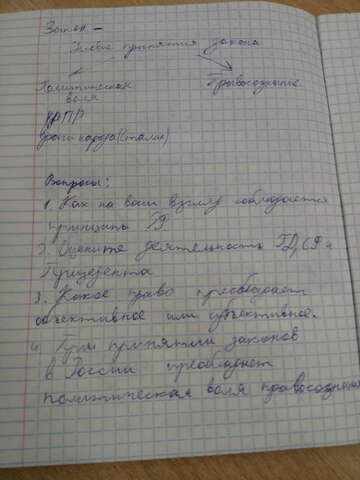 Закон –
принятия закона
Политическая Правосознание
воля
КРПП
Враги народа (Сталин)
Вопросы:
1. Как на ваш взгляд соблюдается
принципы
2. Оцените деятельность ГД, СФ и
Президента
3. Какое право преобладает
объективное или субъективное.
4. При принятии законов
в России преобладает
политическая воля правосознание